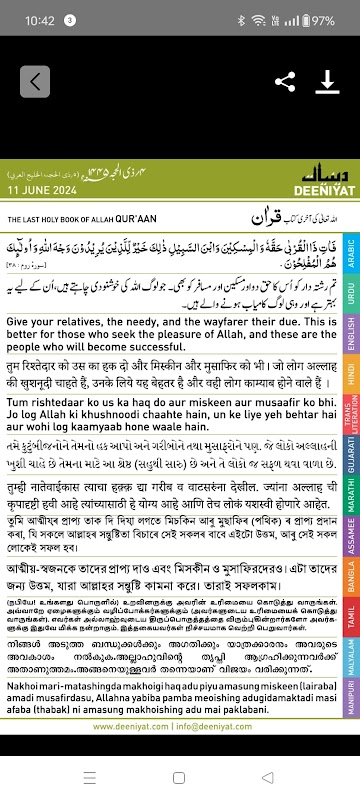 10:42
3
97%
۴؍ذی الحجہ ۱۴۴۵ھ
11 JUNE 2024
DEENIYAT
THE LAST HOLY BOOK OF ALLAH QUR'AAN
اللہ تعالیٰ کی آخری کتاب قرآن
فَاٰتِ ذَا الْقُرْبٰى حَقَّهٗ وَالْمِسْكِيْنَ وَابْنَ السَّبِيْلِ ذٰلِكَ خَيْرٌ لِّلَّذِيْنَ يُرِيْدُوْنَ وَجْهَ اللّٰهِ وَ اُولٰٓئِكَ
هُمُ الْمُفْلِحُوْنَ . [سورۂ روم: ۳۸]
ARABIC
تم رشتہ دار کو اس کا حق دو اور مسکین اور مسافر کو بھی۔ جو لوگ اللہ کی خوشنودی چاہتے ہیں، ان کے لیے یہ
بہتر ہے اور وہی لوگ کامیاب ہونے والے ہیں۔
URDU
Give your relatives, the needy, and the wayfarer their due. This is
better for those who seek the pleasure of Allah, and these are the
people who will become successful.
ENGLISH
तुम रिश्तेदार को उस का हक दो और मिस्कीन और मुसाफिर को भी। जो लोग अल्लाह
की खुशनूदी चाहते हैं, उनके लिये यह बेहतर है और वही लोग काम्याब होने वाले हैं ।
HINDI
Tum rishtedaar ko us ka haq do aur miskeen aur musaafir ko bhi.
Jo log Allah ki khushnoodi chaahte hain, un ke liye yeh behtar hai
aur wohi log kaamyaab hone waale hain.
TRANS LITERATION
તમે કુટુંબીજનોને તેમનો હક આપો અને ગરીબોને તથા મુસાફરોને પણ. જે લોકો અલ્લાહની
ખુશી ચાહે છે તેમના માટે આ શ્રેષ્ઠ (સહુથી સારું) છે અને તે લોકો જ સફળ થવા વાળા છે.
GUJARATI
तुम्ही नातेवाईकास त्याचा हक़्क़ द्या गरीब व वाटसरुंना देखील. ज्यांना अल्लाह ची
कृपादृष्टी हवी आहे त्यांच्यासाठी हे योग्य आहे आणि तेच लोकं यशस्वी होणारे आहेत.
MARATHI
তুমি আত্মীয়ৰ প্ৰাপ্য তাক দি দিয়া লগতে মিচকিন আৰু মুছাফিৰ (পথিক) ৰ প্ৰাপ্য প্ৰদান
কৰা, যি সকলে আল্লাহৰ সন্তুষ্টিতা বিচাৰে সেই সকলৰ বাবে এইটো উত্তম, আৰু সেই সকল
লোকেই সফল হব।
ASSAMEE
আত্মীয়-স্বজনকে তাদের প্রাপ্য দাও এবং মিসকীন ও মুসাফিরদেরও। এটা তাদের
জন্য উত্তম, যারা আল্লাহর সন্তুষ্টি কামনা করে। তারাই সফলকাম।
BANGLA
(நபியே! உங்களது பொருளில்) உறவினருக்கு அவரின் உரிமையை கொடுத்து வாருங்கள்.
அவ்வாறே ஏழைகளுக்கும் வழிப்போக்கர்களுக்கும் (அவர்களுடைய உரிமையைக் கொடுத்து
வாருங்கள்). எவர்கள் அல்லாஹ்வுடைய திருப்பொருத்தத்தை விரும்புகின்றார்களோ அவர்க
ளுக்கு இதுவே மிக்க நன்றாகும். இத்தகையவர்கள் நிச்சயமாக வெற்றி பெறுவார்கள்.
TAMIL
നിങ്ങൾ അടുത്ത ബന്ധുക്കൾക്കും അഗതിക്കും യാത്രക്കാരനും അവരുടെ
അവകാശം നൽകുക.അല്ലാഹുവിന്റെ തൃപ്തി ആഗ്രഹിക്കുന്നവർക്ക്
അതാണുത്തമം.അങ്ങനെയുള്ളവർ തന്നെയാണ് വിജയം വരിക്കുന്നത്.
MALYALAM
Nakhoi mari-matashingda makhoigi haq adu piyu amasung miskeen (lairaba)
amadi musafirdasu, Allahna yabiba pamba meoishing adugidamaktadi masi
afaba (thabak) ni amasung makhoishing adu mai paklabani.
MANIPURI
www.deeniyat.com | info@deeniyat.com